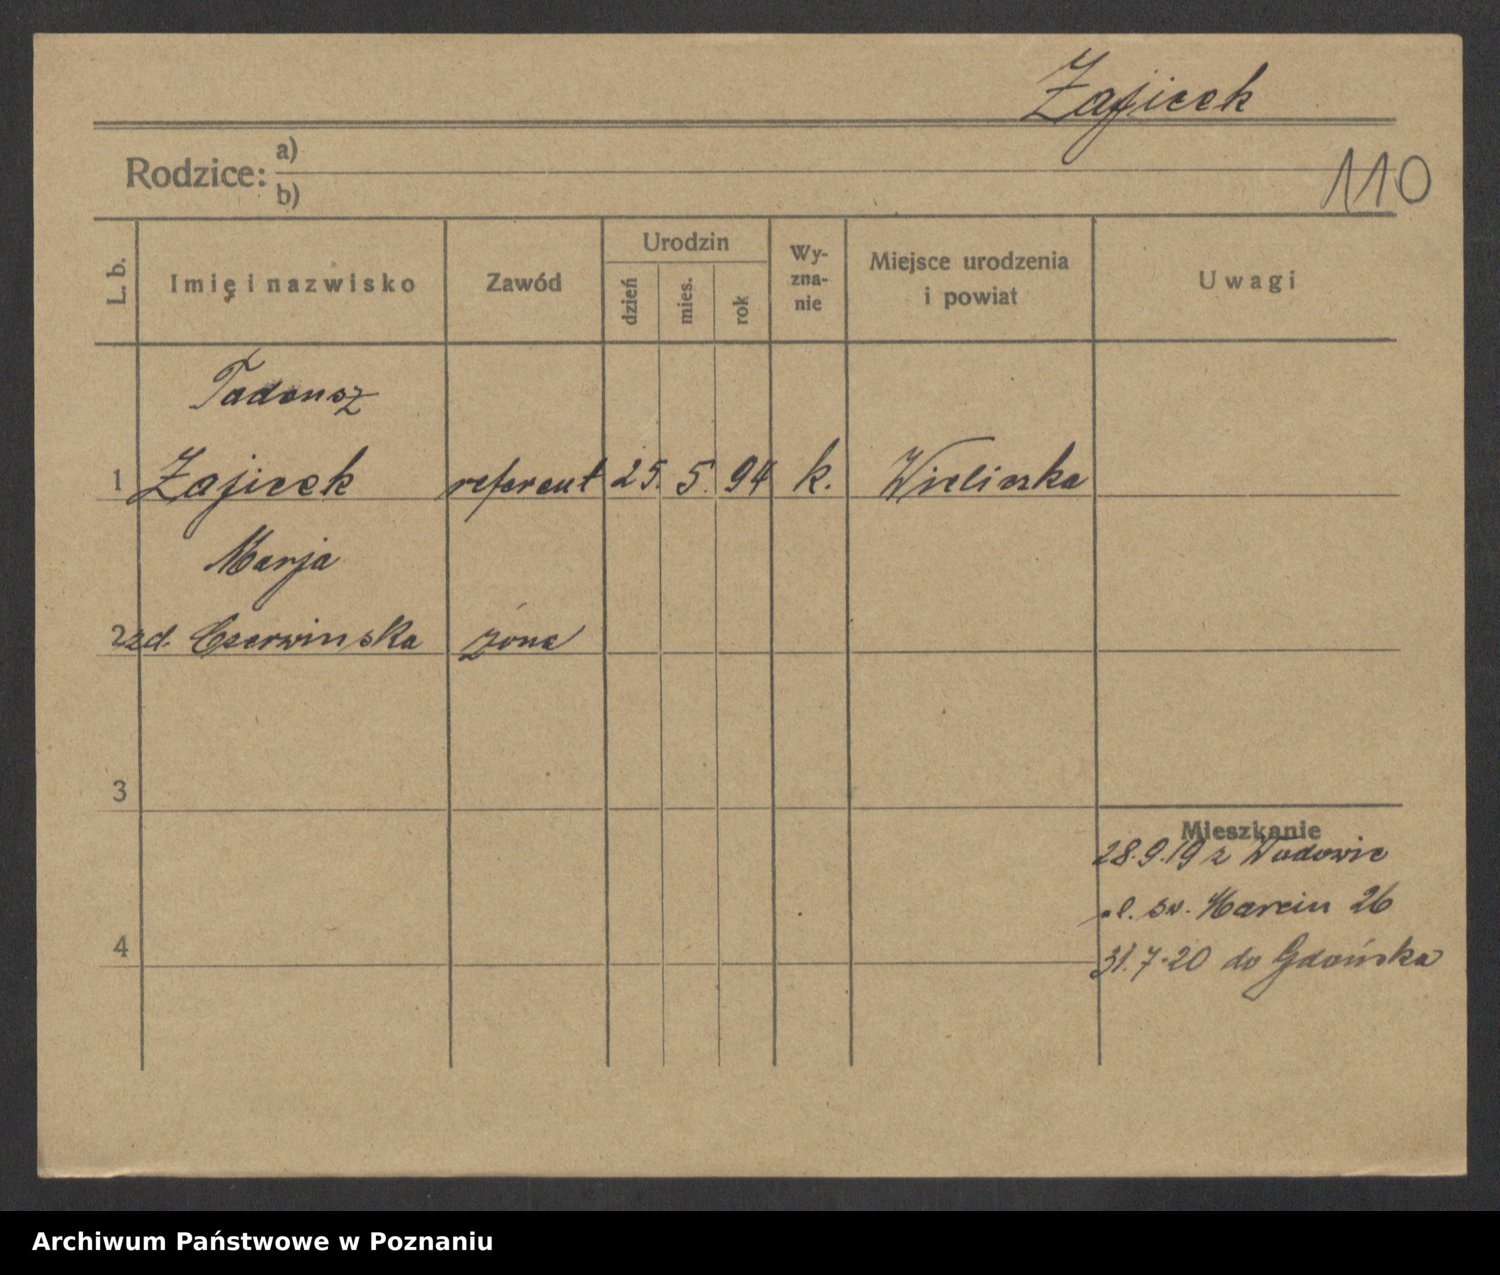 Zajicek
Rodzice: a)
b)
110
L. b.
Imię i nazwisko
Zawód
Urodzin
dzień
mies.
rok
Wy-
zna-
nie
Miejsce urodzenia
i powiat
Uwagi
Tadeusz
1 Zajicek referent 25. 5. 94 k. Wieliczka
Marja
2 zd. Czerwinska żona
3
Mieszkanie
28.9.19 z Wadowic
ul. św. Marcin 26
4
31.7.20 do Gdańska
Archiwum Państwowe w Poznaniu